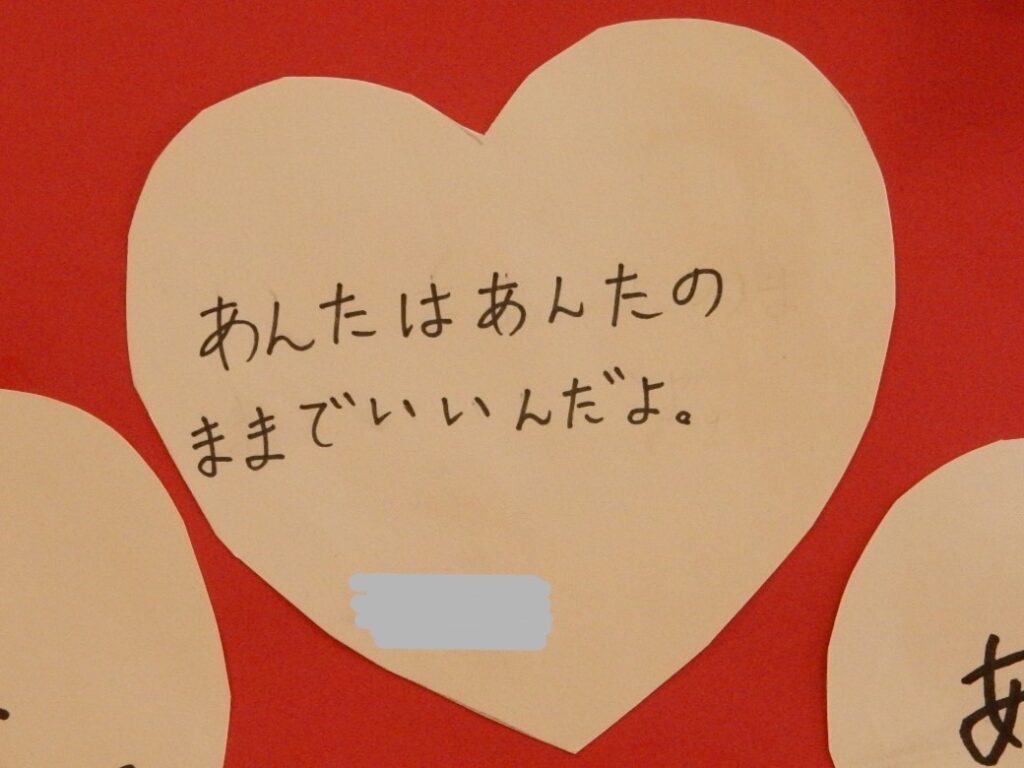 あんたはあんたの
ままでいいんだよ。
あ